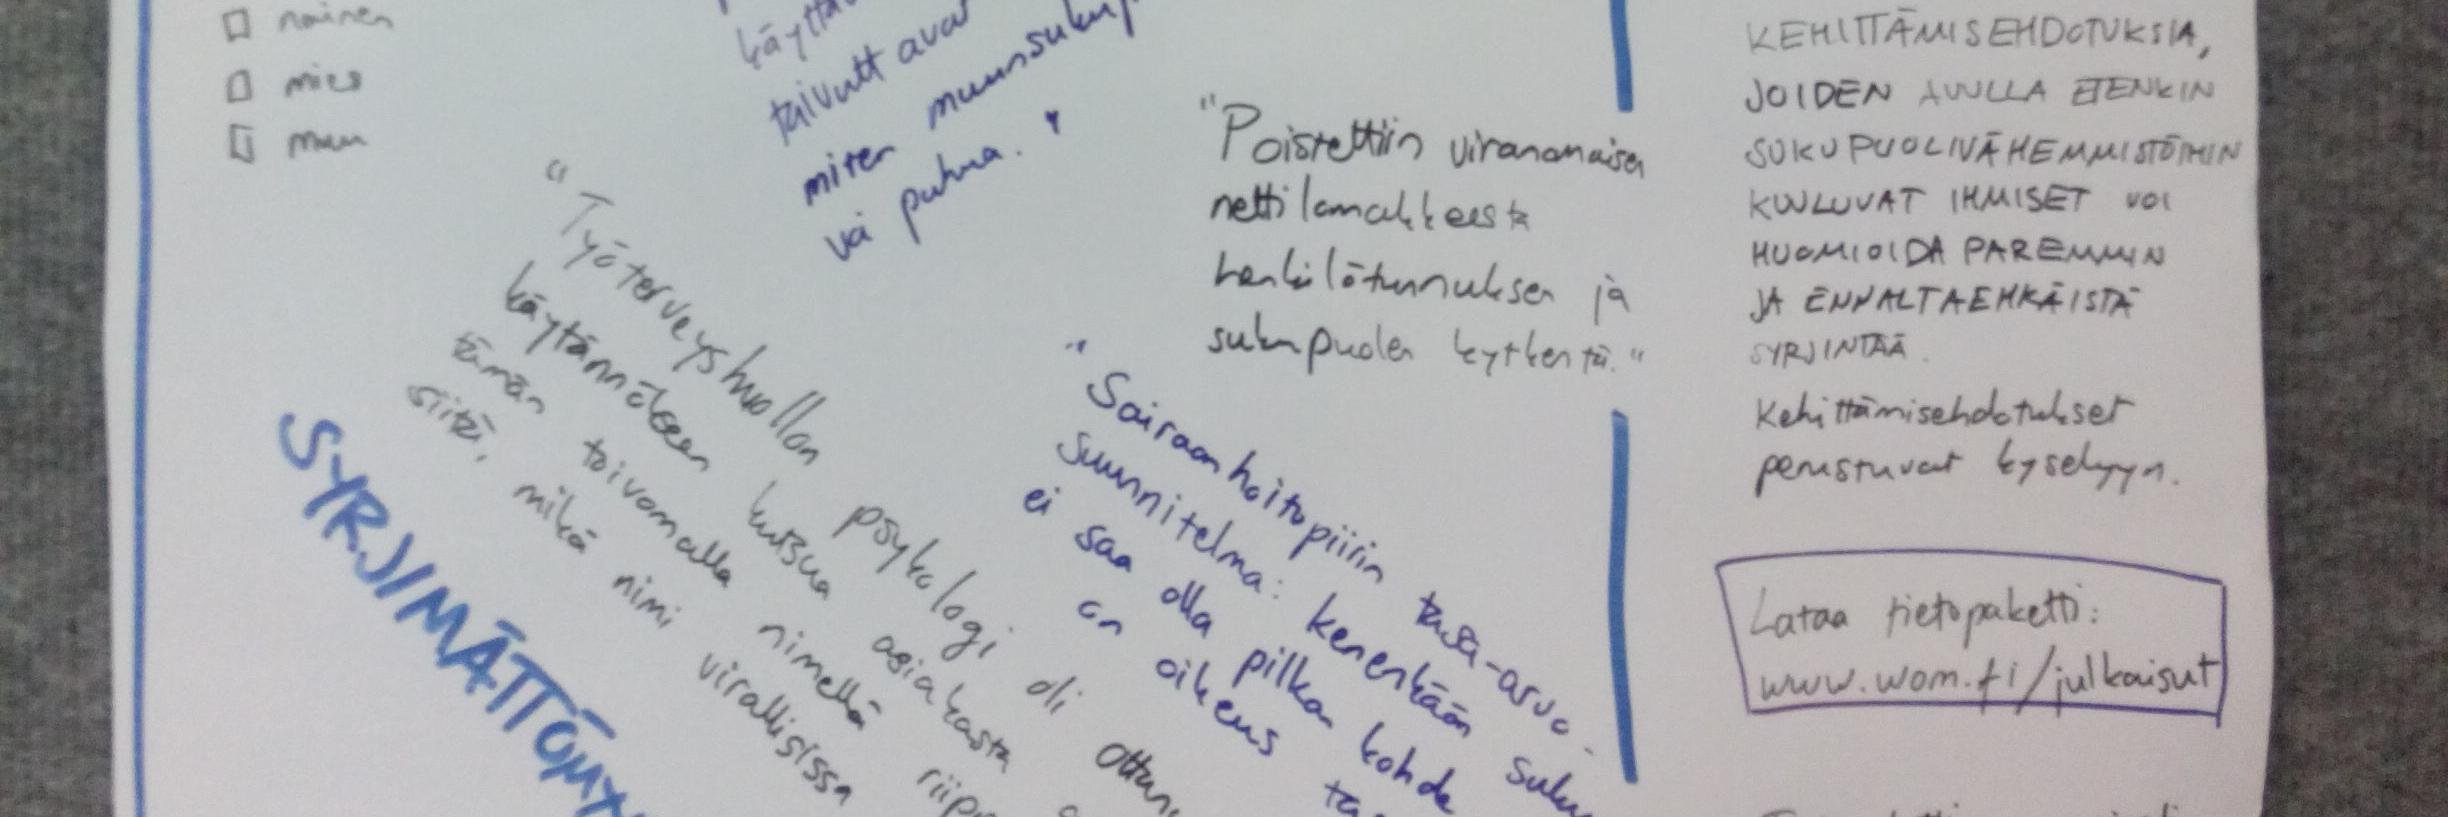 nainen
mies
muu
taivutt avat
miten
vai puhua."
"Työterveyshuollon psykologi oli ottanut
käytännökseen kutsua asiakasta
tämän toivomalla nimellä
siitä, mikä nimi virallisissa
SYRJIMÄTTÖMY
"Poistettiin viranomaisen
nettilomakkeesta
henkilötunnuksen ja
sukupuolen kytkentä."
"Sairaanhoitopiirin tasa-arvo-
suunnitelma: kenenkään suku
ei saa olla pilkan kohde
on oikeus
KEHITTÄMISEHDOTUKSIA,
JOIDEN AVULLA ETENKIN
SUKUPUOLIVÄHEMMISTÖIHIN
KUULUVAT IHMISET VOI
HUOMIOIDA PAREMMIN
JA ENNALTAEHKÄISTÄ
SYRJINTÄÄ.
Kehittämisehdotukset
perustuvat kyselyyn.
Lataa tietopaketti:
www.wom.fi/julkaisut